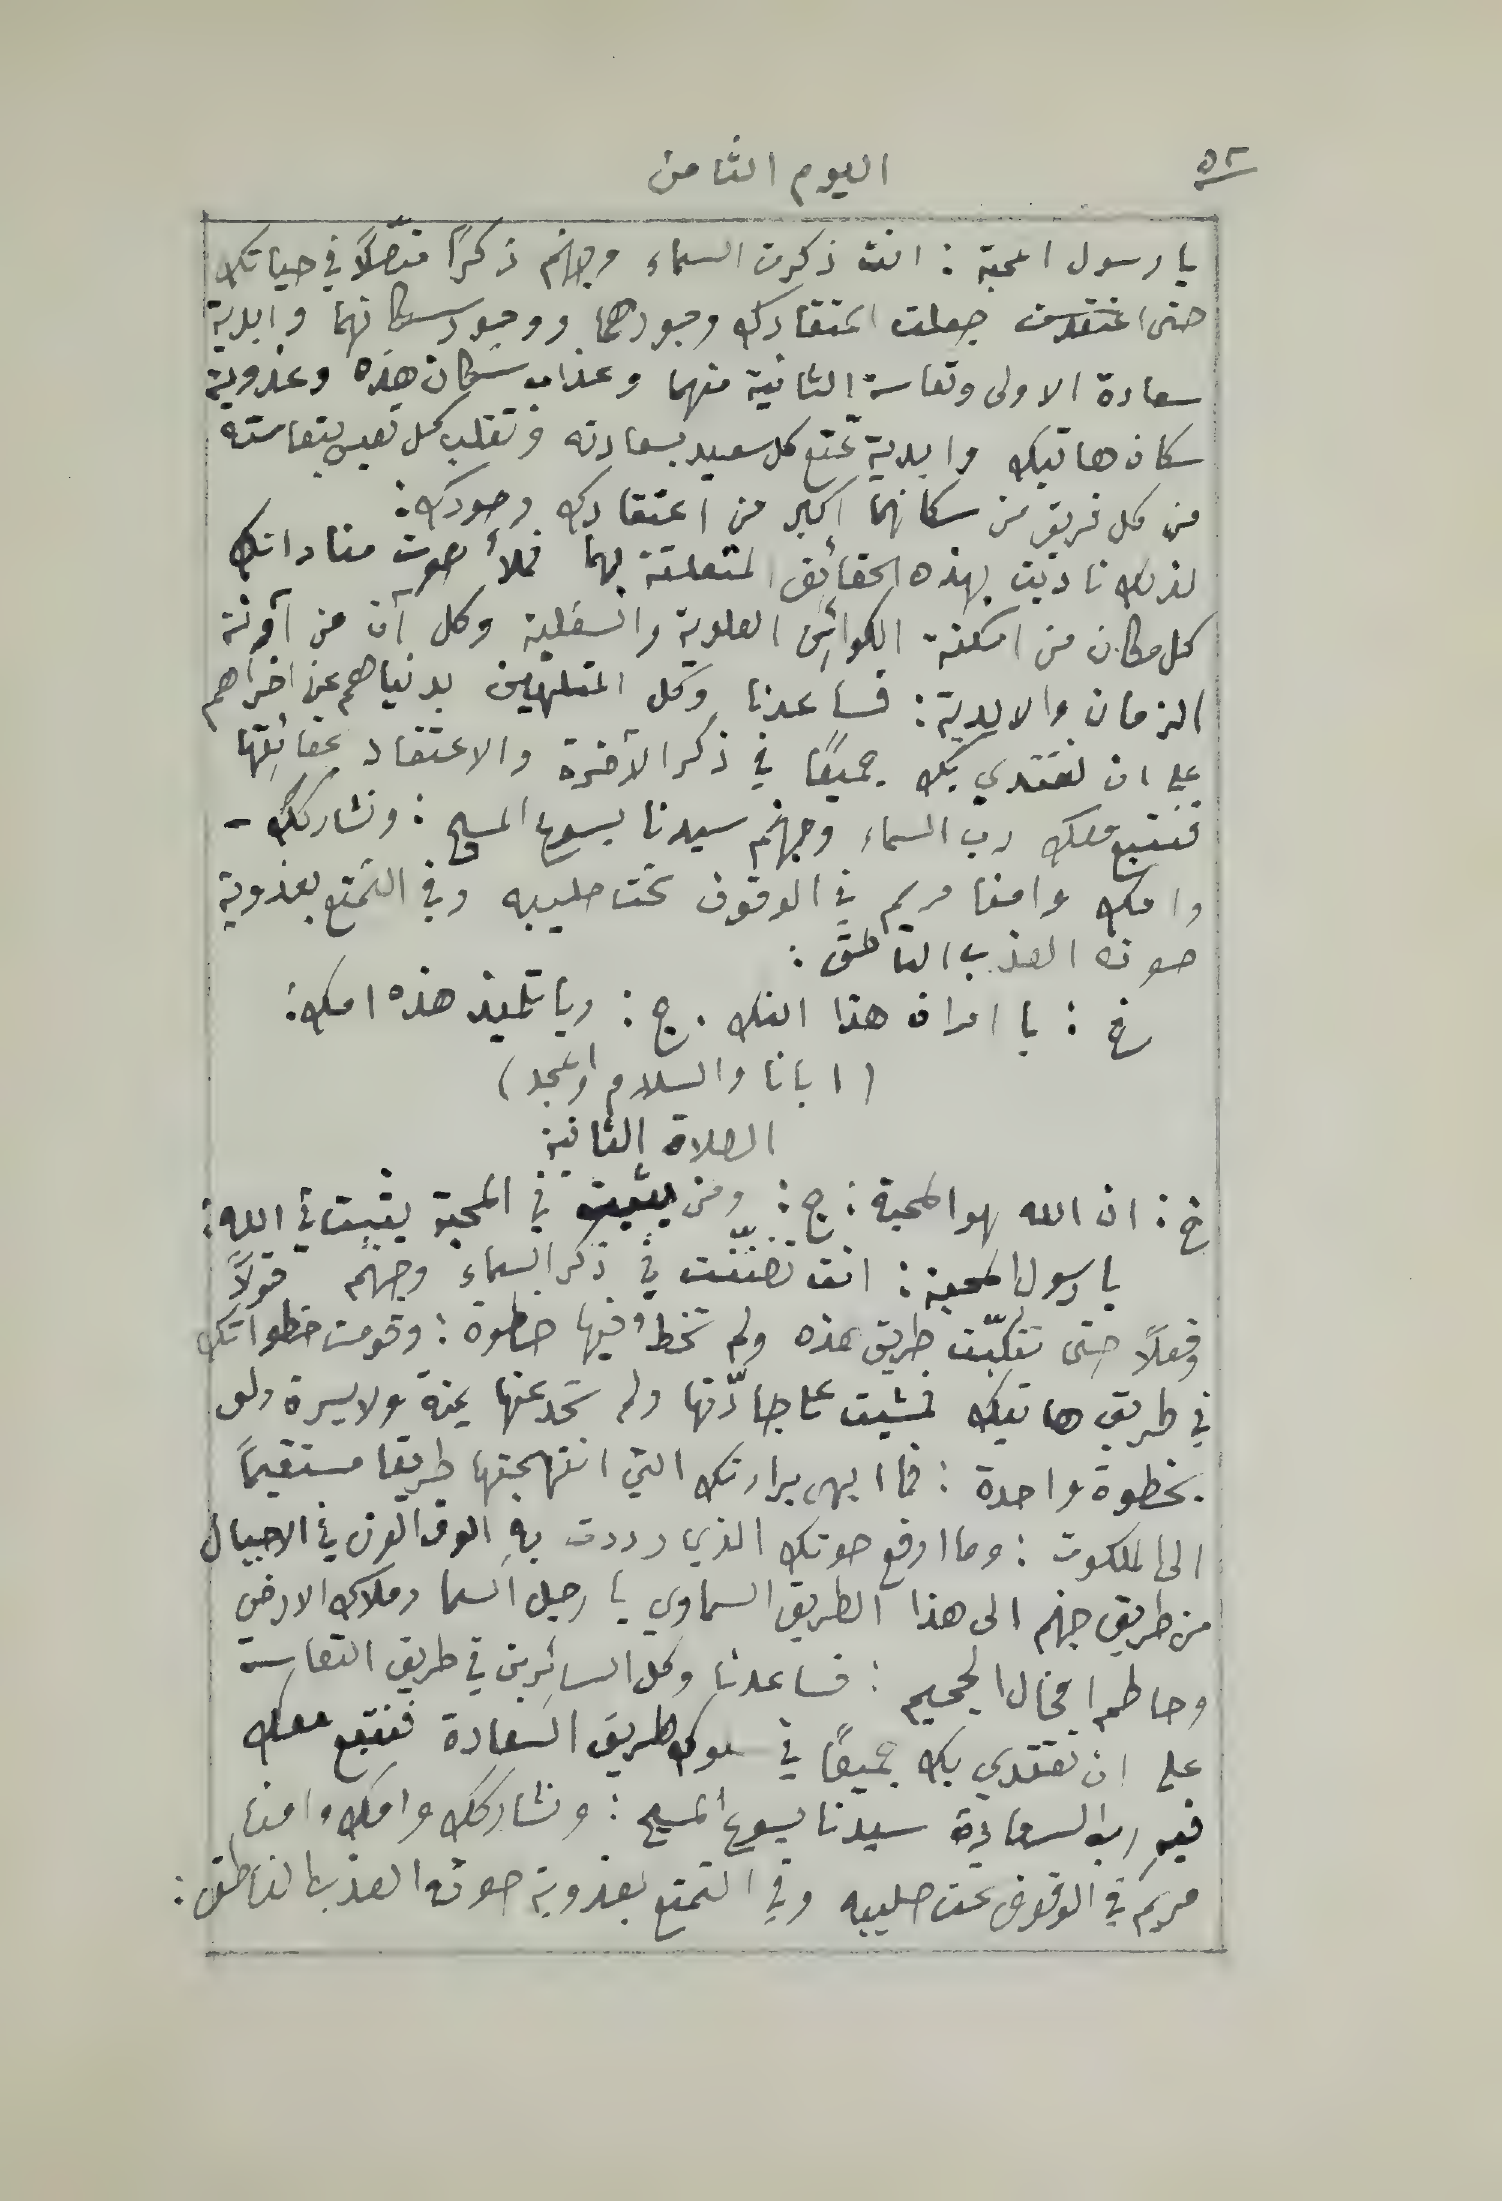 ٥٢
اليوم الثامن
يا رسول المحبة : انت ذكرت السماء وجهنم ذكرًا متصّلاً في حياتك
حتى اعتقدت جعلت اعتقادك وجودهما ووجود سكانهما وابدية
سعادة الاولى وتعاسة الثانية منهما وعذاب سكان هذه وعذوبة
سكان هاتيك وابدية تمتّع كل سعيد بسعادته وتقلب كل تعيس بتعاسته
من كل فريق من سكانهما اكبر من اعتقادك وجودك :
لذلك ناديت بهذه الحقائق المتعلقة بهما فملأ صوت مناداتك
كل مكان من امكنة الكوائن العلوية والسفلية وكل آن من آونة
الزمان والابدية : فساعدنا وكل المتلهين بدنياهم عن اخراهم
على ان نقتدي بك جميعًا في ذكر الآخرة والاعتقاد بحقائقها
فنتبع معك رب السماء وجهنم سيدنا يسوع المسيح : ونشاركك -
وامك وامنا مريم في الوقوف تحت صليبه وفي التمتع بعذوبة
صوته العذب الناطق :
خ : يا امراة هذا ابنك . ج : ويا تلميذ هذه امك :
( ابانا والسلام والمجد )
الصلاة الثانية
خ : ان الله هو المحبة : ج : ومن يثبت في المحبة يثبت في الله :
يا رسول المحبة : انت تفنّنت في ذكر السماء وجهنم قولاً
وفعلاً حتى تنكبّت طريق هذه ولم تخطُ فيها خطوة : وقومت خطواتك
في طريق هاتيك فمشيت على جادّتها ولم تحد عنها يمنة ولا يسرة ولو
بخطوة واحدة : فما ابهى برارتك التي انتهجتها طريقا مستقيماً
الى الملكوت : وما ارفع صوتك الذي رددت بهِ الوف الوف في الاجيال
من طريق جهنم الى هذا الطريق السماوي يا رجل السما وملاك الارض
وحاطم الجحيم : فساعدنا وكل السائرين في طريق التعاسة
على ان نقتدي بك جميعًا في سلوك طريق السعادة فنتبع معك
فيهِ رب السعادة سيدنا يسوع المسيح : ونشاركك وامك وامنا
مريم في الوقوف تحت صليبه وفي التمتع بعذوبة صوته العذب الناطق :